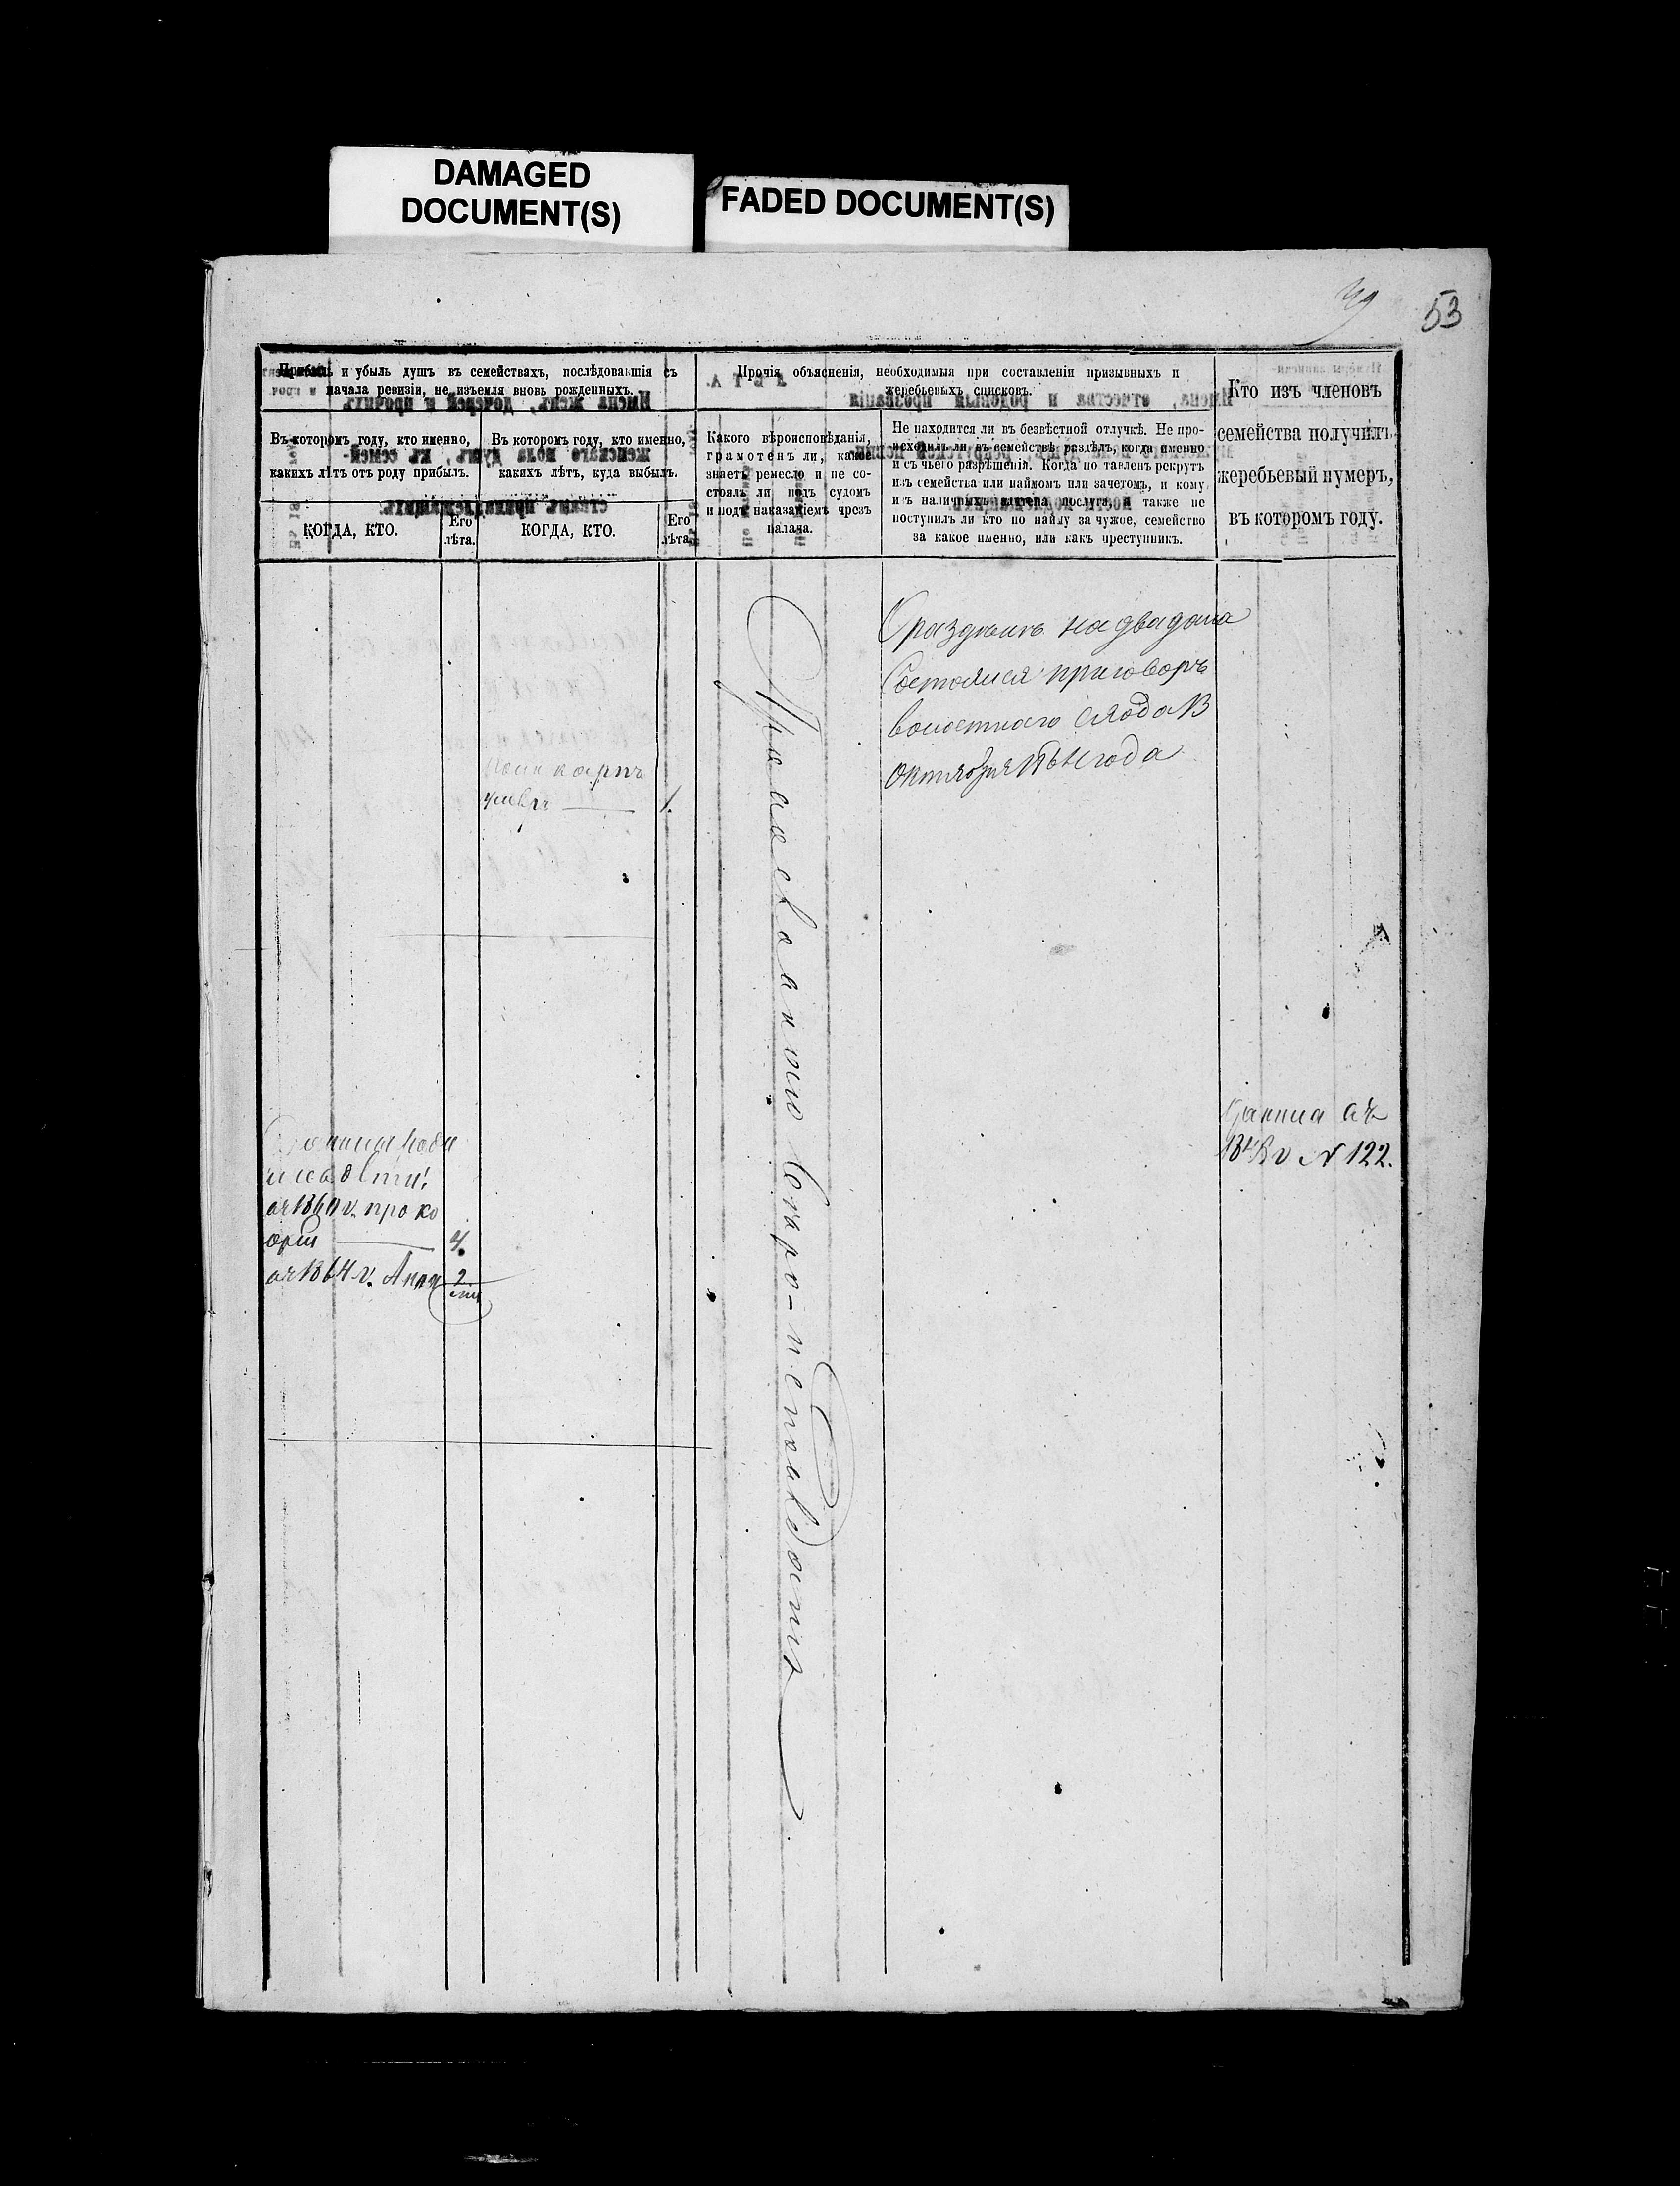 DAMAGED
DOCUMENT(S)
FADED DOCUMENT(S)
53
и убыль душъ въ семействахъ, послѣдовавшія съ
начала ревизіи, не изъемля вновь рожденныхъ.
Прочія объясненія, необходимыя при составленіи призывныхъ и
жеребьевыхъ списковъ.
Кто изъ членовъ
семейства получилъ
жеребьевый нумеръ,
въ которомъ году.
Въ которомъ году, кто именно,
какихъ лѣтъ отъ роду прибылъ.
Въ которомъ году, кто именно,
какихъ лѣтъ, куда выбылъ.
Какого вѣроисповѣданія,
грамотенъ ли, какое
знаетъ ремесло и не со-
стоялъ ли подъ судомъ
и подъ наказаніемъ чрезъ
палача.
Не находится ли въ безвѣстной отлучкѣ. Не про-
исходилъ ли въ семействѣ раздѣлъ, когда именно
и съ чьего разрѣшенія. Когда по тавленъ рекрутъ
изъ семейства или наймомъ или зачетомъ, и кому
изъ наличныхъ члена послуга, а также не
поступилъ ли кто по найму за чужое, семейство
за какое именно, или какъ преступникъ.
КОГДА, КТО.
Его
лѣта.
КОГДА, КТО.
Его
лѣта.
О раздѣлѣ на два дома
Состоялся приговоръ
волостного схода 13
Октября года
карпъ
умеръ 1.
Православнаго Вѣро-исповѣданія
Данила въ
№ 122.
Данилы роди
лись дѣти:
въ 186 г. Проко
офій 4.
въ 1864 г. Анна 2